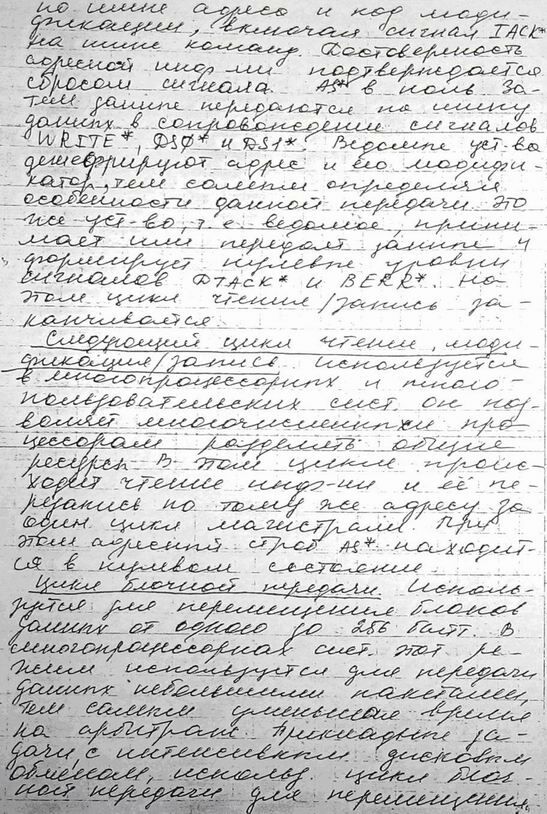 по шине адреса и код моди-
фикации, включая сигнал IACK*
на шине команд. Достоверность
адресной инф-ми подтверждается
сбросом сигнала AS* в ноль. За-
тем данные передаются по шине
данных в сопровождении сигналов
WRITE*, DS0* и DS1*. Ведомые уст-ва
дешефрируют адрес и его модифи-
катор, тем самым определяя
особенности данной передачи. Это
же уст-во, т.е. ведомое, прини-
мает или передает данные и
формирует нулевые уровни
сигналов DTACK* и BERR*. На
этом цикл чтения/запись за-
канчивается.
Следующий цикл чтение, моди-
фикация/запись используется
в многопроцессорных и много-
пользовательских сист. он поз-
воляет многочисленным про-
цессорам разделять общие
ресурсы. В этом цикле проис-
ходит чтение инф-ии и её пе-
резапись по тому же адресу за
один цикл магистрали. При
этом адресный строб AS* находит-
ся в нулевом состоянии.
Цикл блочной передачи. Исполь-
зуется для перемещения блоков
данных от одного до 256 байт. В
многопроцессорных сист. этот ре-
жим используется для передачи
данных небольшими пакетами,
тем самым уменьшая время
на арбитраж. Прикладные за-
дачи, с интенсивным дисковым
обменом, использ. цикл блоч-
ной передачи для перемещения